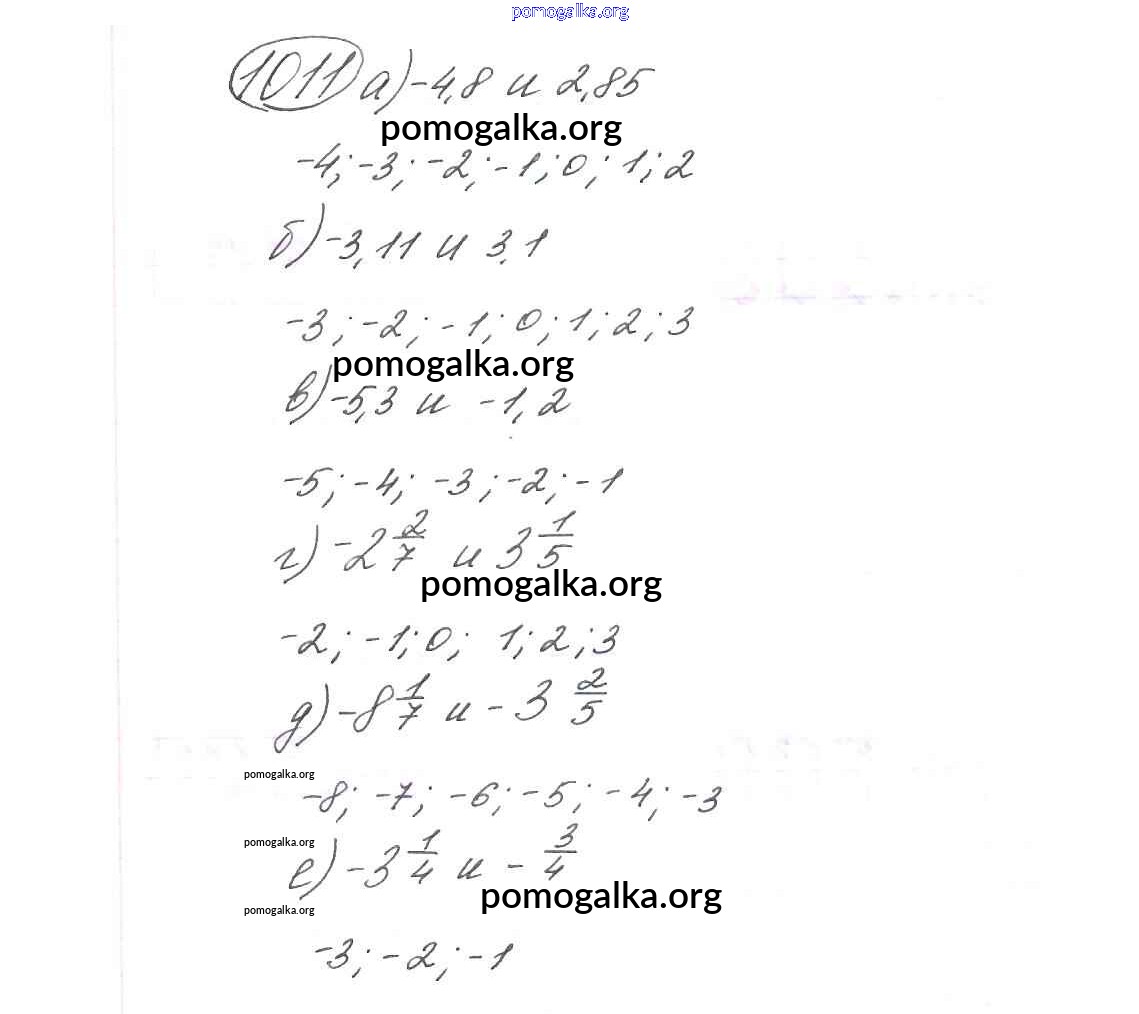 pomogalka.org
1011 а) -4,8 и 2,85
pomogalka.org
-4; -3; -2; -1; 0; 1; 2
б) -3,11 и 3,1
-3; -2; -1; 0; 1; 2; 3
pomogalka.org
в) -5,3 и -1,2
-5; -4; -3; -2; -1
г) -2 2/7 и 3 1/5
pomogalka.org
-2; -1; 0; 1; 2; 3
д) -8 1/7 и -3 2/5
pomogalka.org
-8; -7; -6; -5; -4; -3
pomogalka.org
е) -3 1/4 и - 3/4
pomogalka.org
pomogalka.org
-3; -2; -1